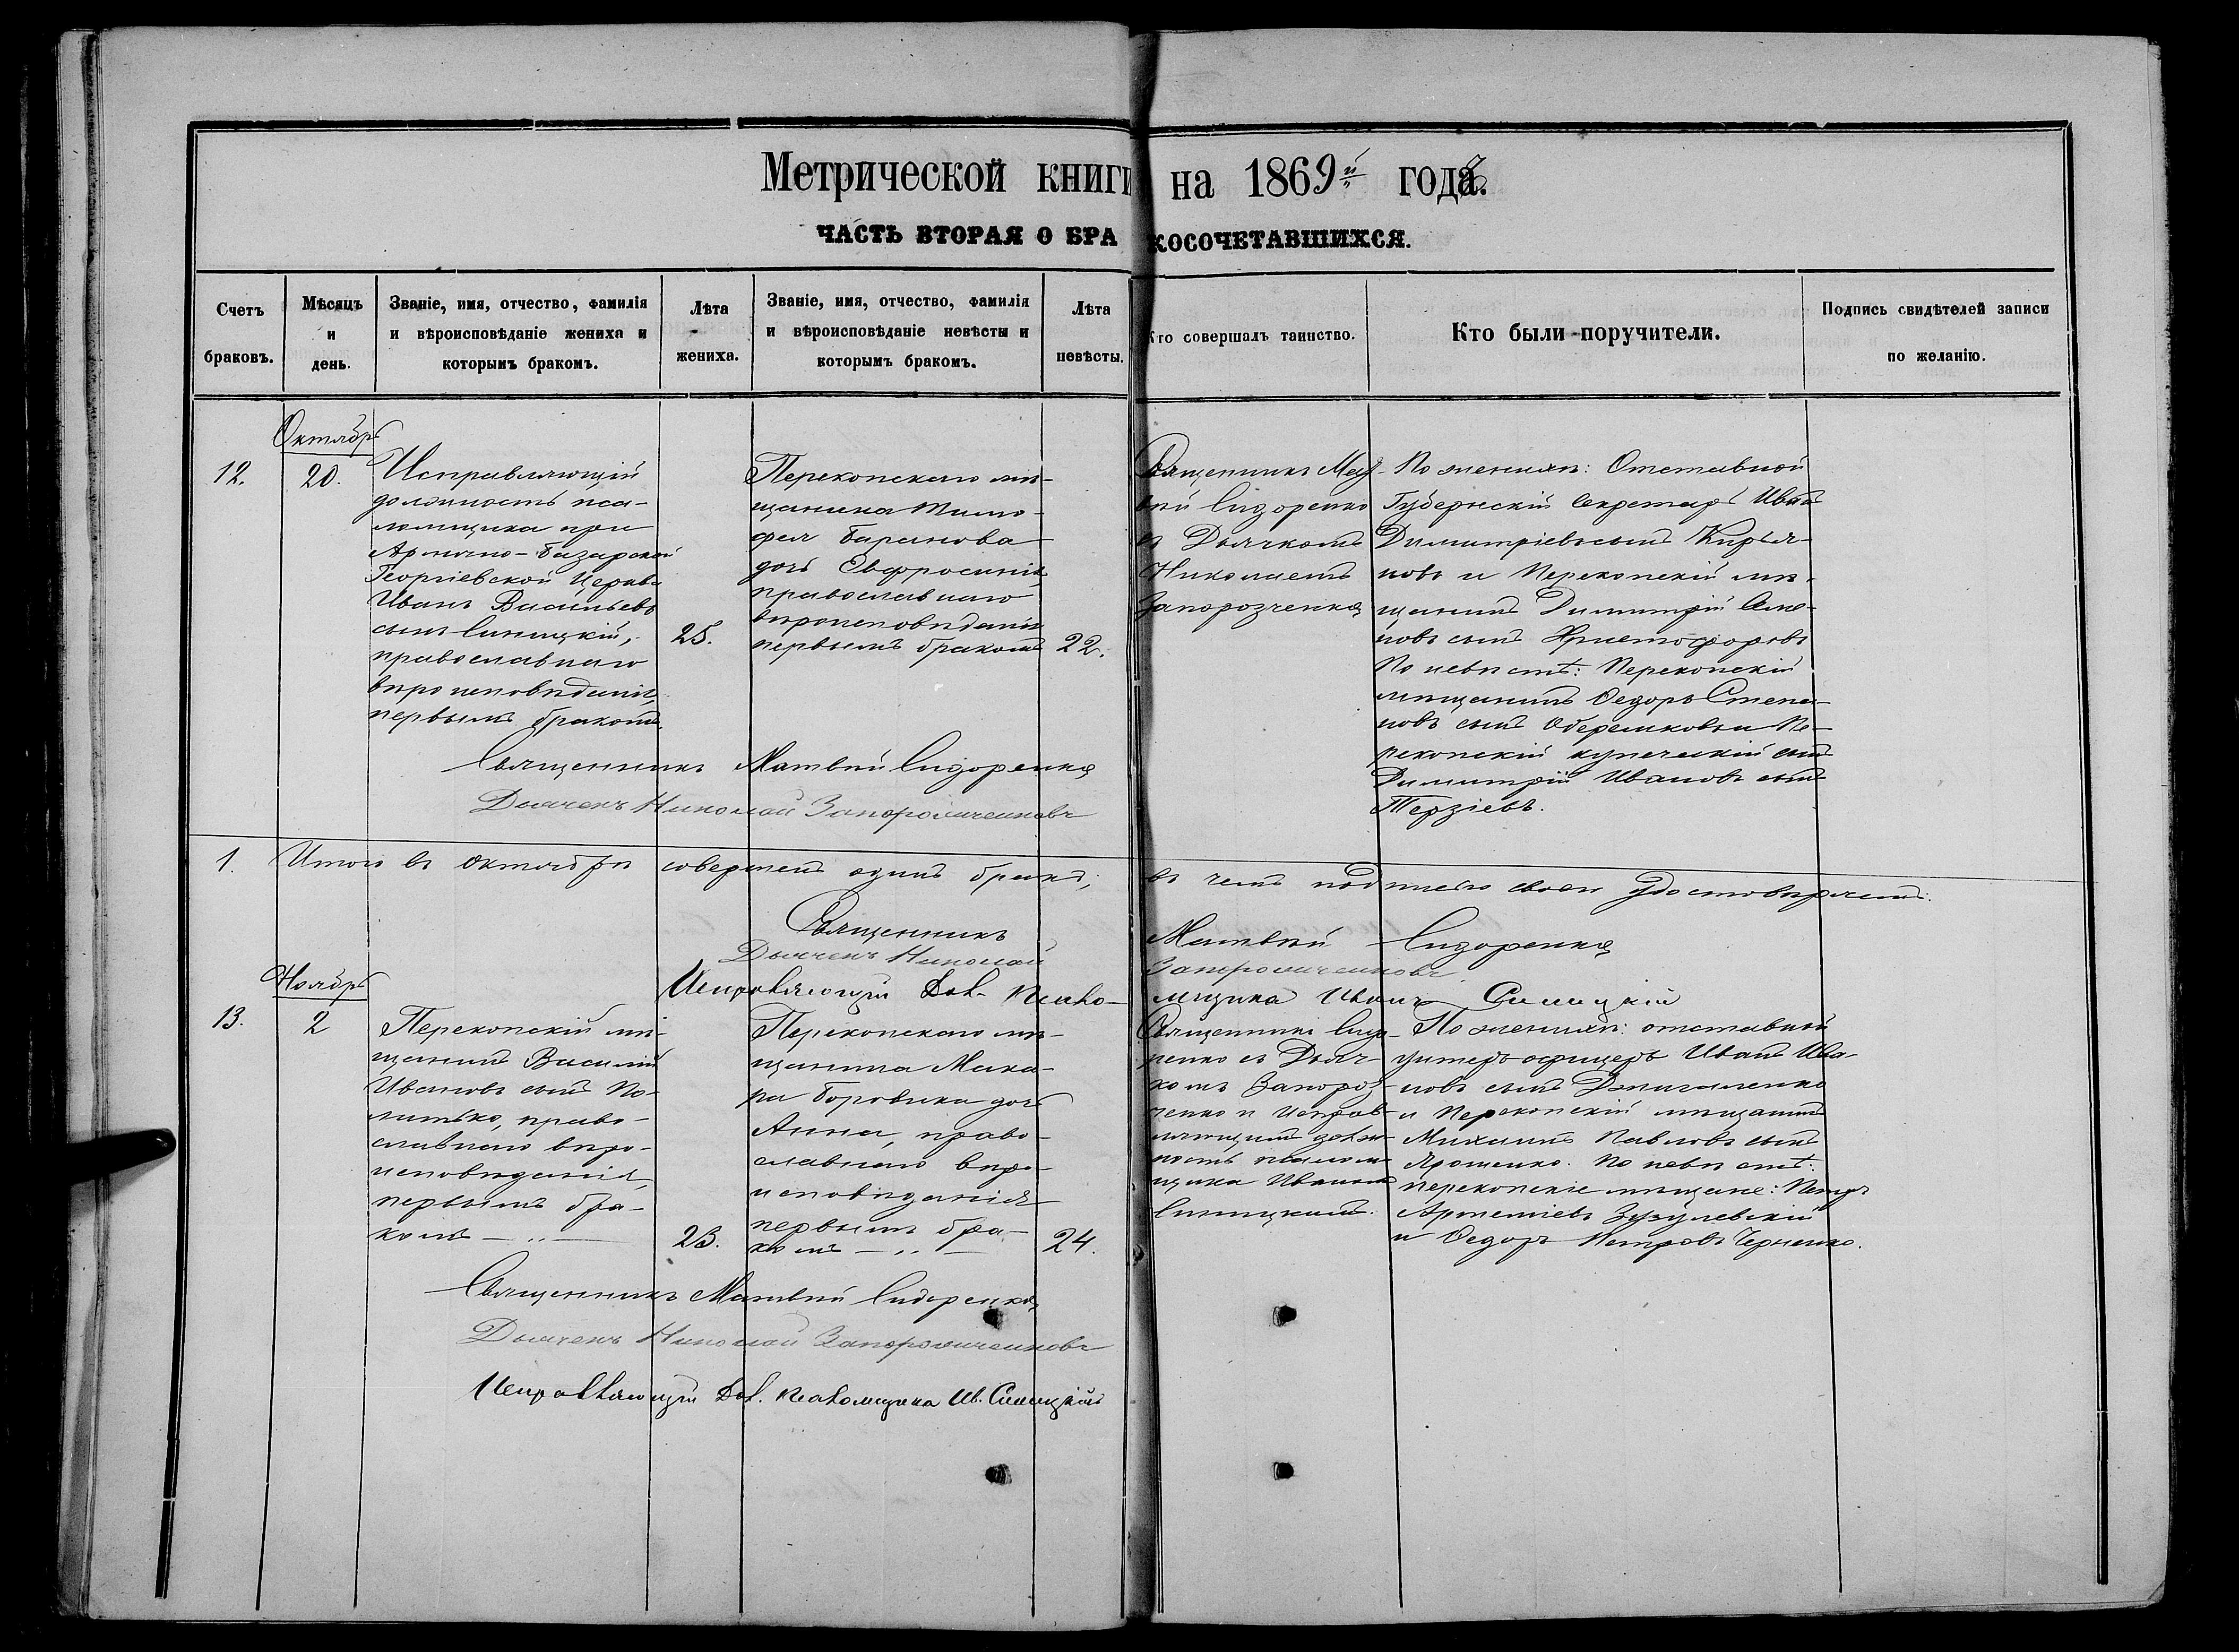 Метрической книги на 1869й годъ.
ЧАСТЬ ВТОРАЯ О БРАКОСОЧЕТАВШИХСЯ.
Счетъ
браковъ.
Мѣсяцъ
и
день.
Званіе, имя, отчество, фамилія
и вѣроисповѣданіе жениха и
которымъ бракомъ.
Лѣта
жениха.
Званіе, имя, отчество, фамилія
и вѣроисповѣданіе невѣсты и
которымъ бракомъ.
Лѣта
невѣсты.
Кто совершалъ таинство.
Кто были поручители.
Подпись свидѣтелей записи
по желанію.
Октябрь
12.
20.
Исправляющій
должность пса-
ломщика при
Армяно-Базарской
Георгіевской Церкви
Иванъ Васильевъ
сынъ Синицкій,
православнаго
вѣроисповѣданія,
первымъ бракомъ.
25.
Перекопскаго мѣ-
щанина Тимо-
фея Баринова
дочь Евфросинія
православнаго
вѣроисповѣданія
первымъ бракомъ
22.
Священникъ Мат-
вѣй Сидоренко
съ Дьячкомъ
Николаемъ
Запорозченко
По женихѣ: Отставной
Губернскій Секретарь Иванъ
Димитріевъ сынъ Кирья-
новъ и Перекопскій мѣ-
щанинъ Димитрій Семе-
новъ сынъ Христофоровъ
По невѣстѣ: Перекопскій
мѣщанинъ Ѳедоръ Степа-
новъ сынъ и Пе-
рекопскій купеческій сынъ
Димитрій Ивановъ сынъ
Терзіевъ.
Священникъ Матвѣй Сидоренко
Дьячекъ Николай Запорожченковъ
1. Итого въ Октябрѣ совершенъ одинъ бракъ; въ чемъ подписью своею удостовѣряемъ:
Священникъ Матвѣй Сидоренко
Дьячекъ Николай Запорожченковъ
Исправляющій Дол. Псаломщика Иванъ Синицкій
Ноябрь
13.
2
Перекопскій мѣ-
щанинъ Василій
Ивановъ сынъ По-
литько, право-
славнаго вѣро-
исповѣданія,
первымъ бра-
комъ
23.
Перекопскаго мѣ-
щанина Мака-
ра Боровика дочь
Анна, право-
славнаго вѣро-
исповѣданія
первымъ бра-
комъ
24.
Священникъ Сидо-
ренко съ Дьяч-
комъ Запороз-
ченко и исправ-
ляющимъ долж-
ность псалом-
щика Иваномъ
Синицкимъ.
По женихѣ: отставной
унтеръ офицеръ Иванъ Ива-
новъ сынъ
и Перекопскій мѣщанинъ
Михаилъ Павловъ сынъ
Ярошенко. По невѣстѣ:
перекопскіе мѣщане: Петръ
Артеміевъ Зузулевскій
и Ѳедоръ Петровъ Черненко.
Священникъ Матвѣй Сидоренко,
Дьячекъ Николай Запорожченковъ
Исправляющій Дол. Псаломщика Ив. Синицкій